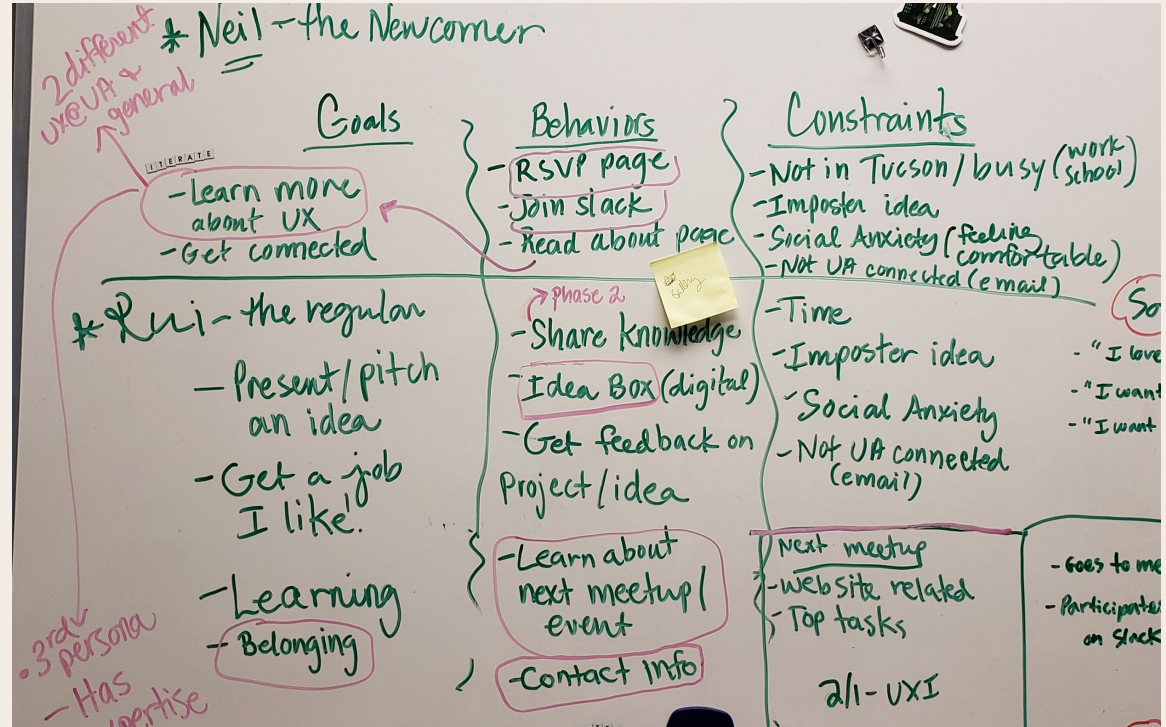 * Neil - the Newcomer
2 different
UX@UA &
general
Goals
ITERATE
- Learn more
about UX
- Get connected
Behaviors
- RSVP page
- Join slack
- Read about page
Constraints
- Not in Tucson / busy (work
school)
- Imposter idea
- Social Anxiety (feeling
comfortable)
- Not UA connected (email)
* Rui - the regular
- Present/pitch
an idea
- Get a job
I like!
- Learning
- Belonging
Phase 2
- Share knowledge
- Idea Box (digital)
- Get feedback on
Project/idea
- Learn about
next meetup/
event
- Contact Info
- Time
- Imposter idea
- Social Anxiety
- Not UA connected
(email)
Next meetup
- Website related
- Top tasks
2/1 - UXI
So
- "I love
- "I want
- "I want
- Goes to me
- Participates
on Slack
. 3rd
persona
- Has
pertise